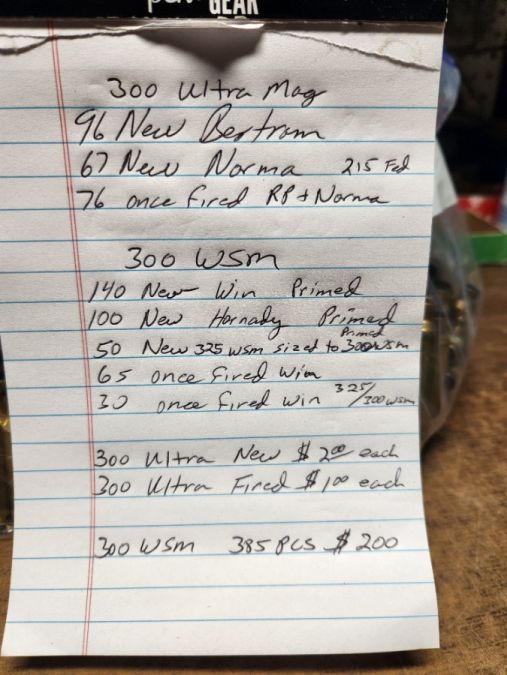 GEAR
300 Ultra Mag
96 New Bertram
67 New Norma 215 Fed
76 once fired RP + Norma
300 WSM
140 New Win Primed
100 New Hornady Primed
50 New 325 WSM sized to 300 WSM Primed
65 once fired Win
30 once fired win 325/300 WSM
300 Ultra New $ 2.00 each
300 Ultra Fired $ 1.00 each
300 WSM 385 PCS $ 200